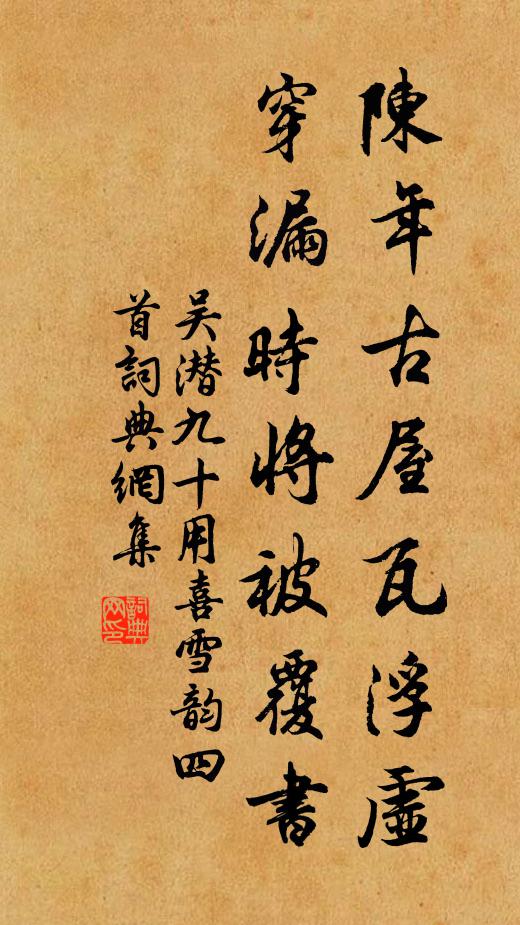 陳年古屋瓦浮虛
穿漏時將被覆書
吴潜九十用喜雪韵四
首詞典網集
詞典
网印